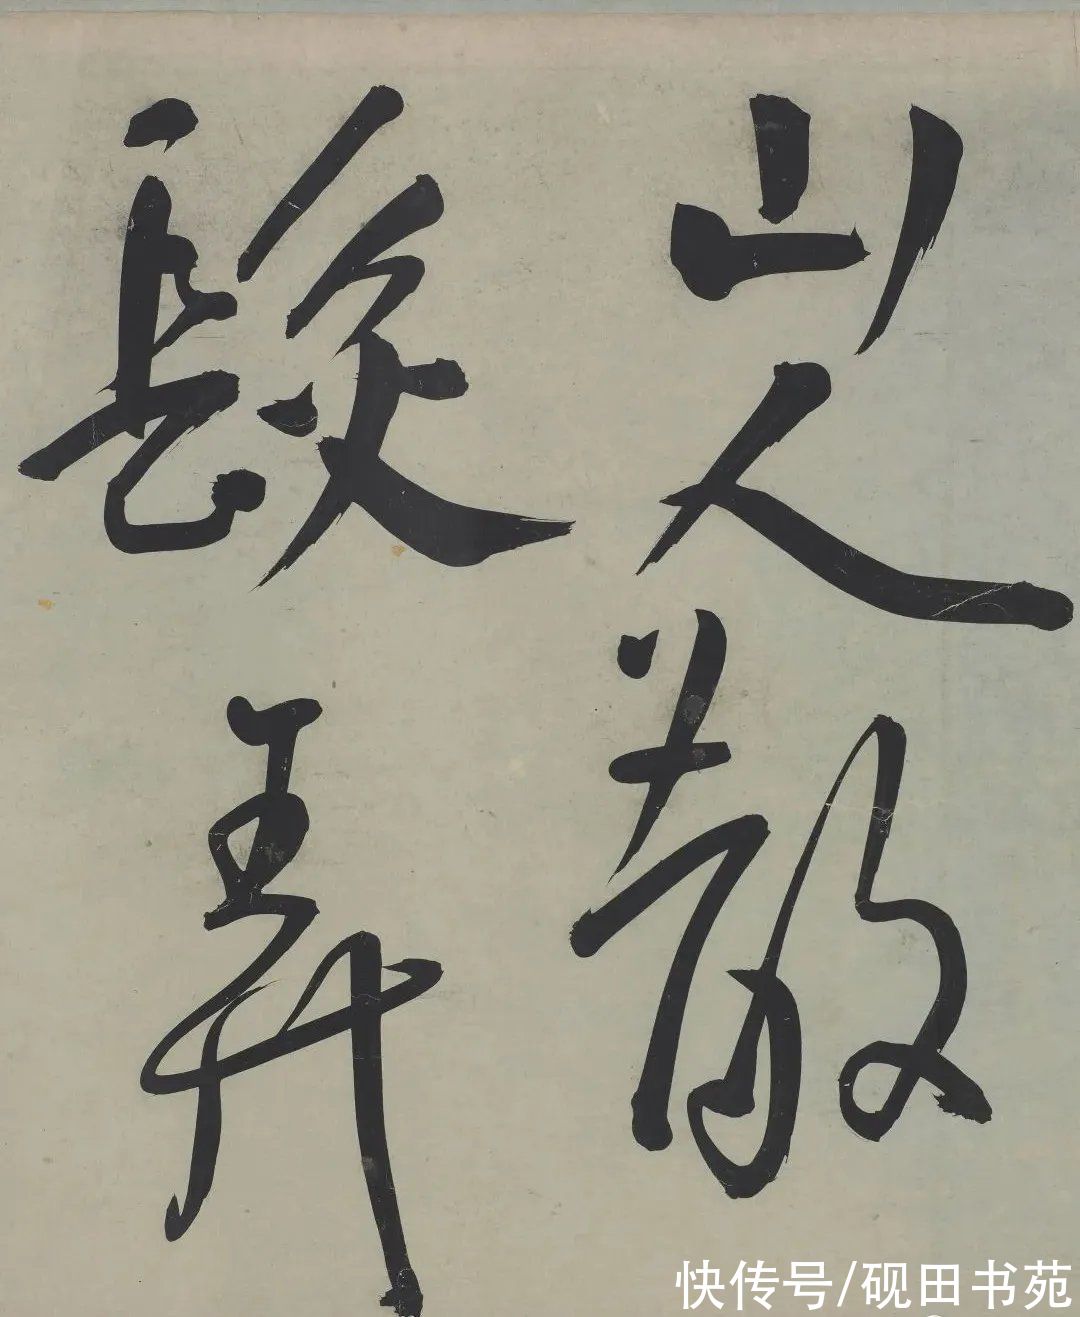 山人散
髮弄
快传号/砚田书苑